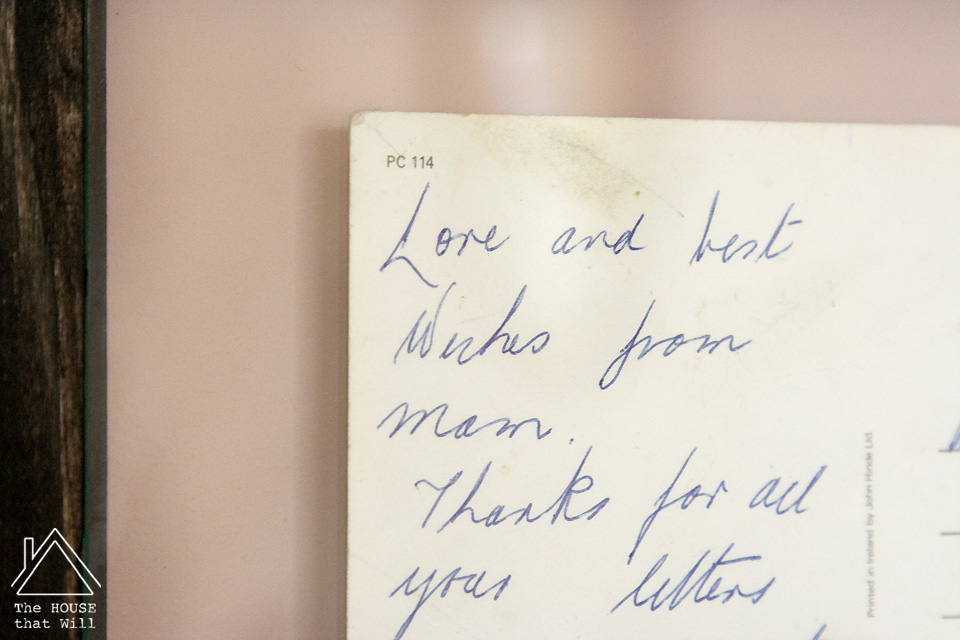 PC 114
Love and best
Wishes from
mam.
Thanks for all
your letters
Printed in Ireland by John Hinde Ltd
The HOUSE
that Will